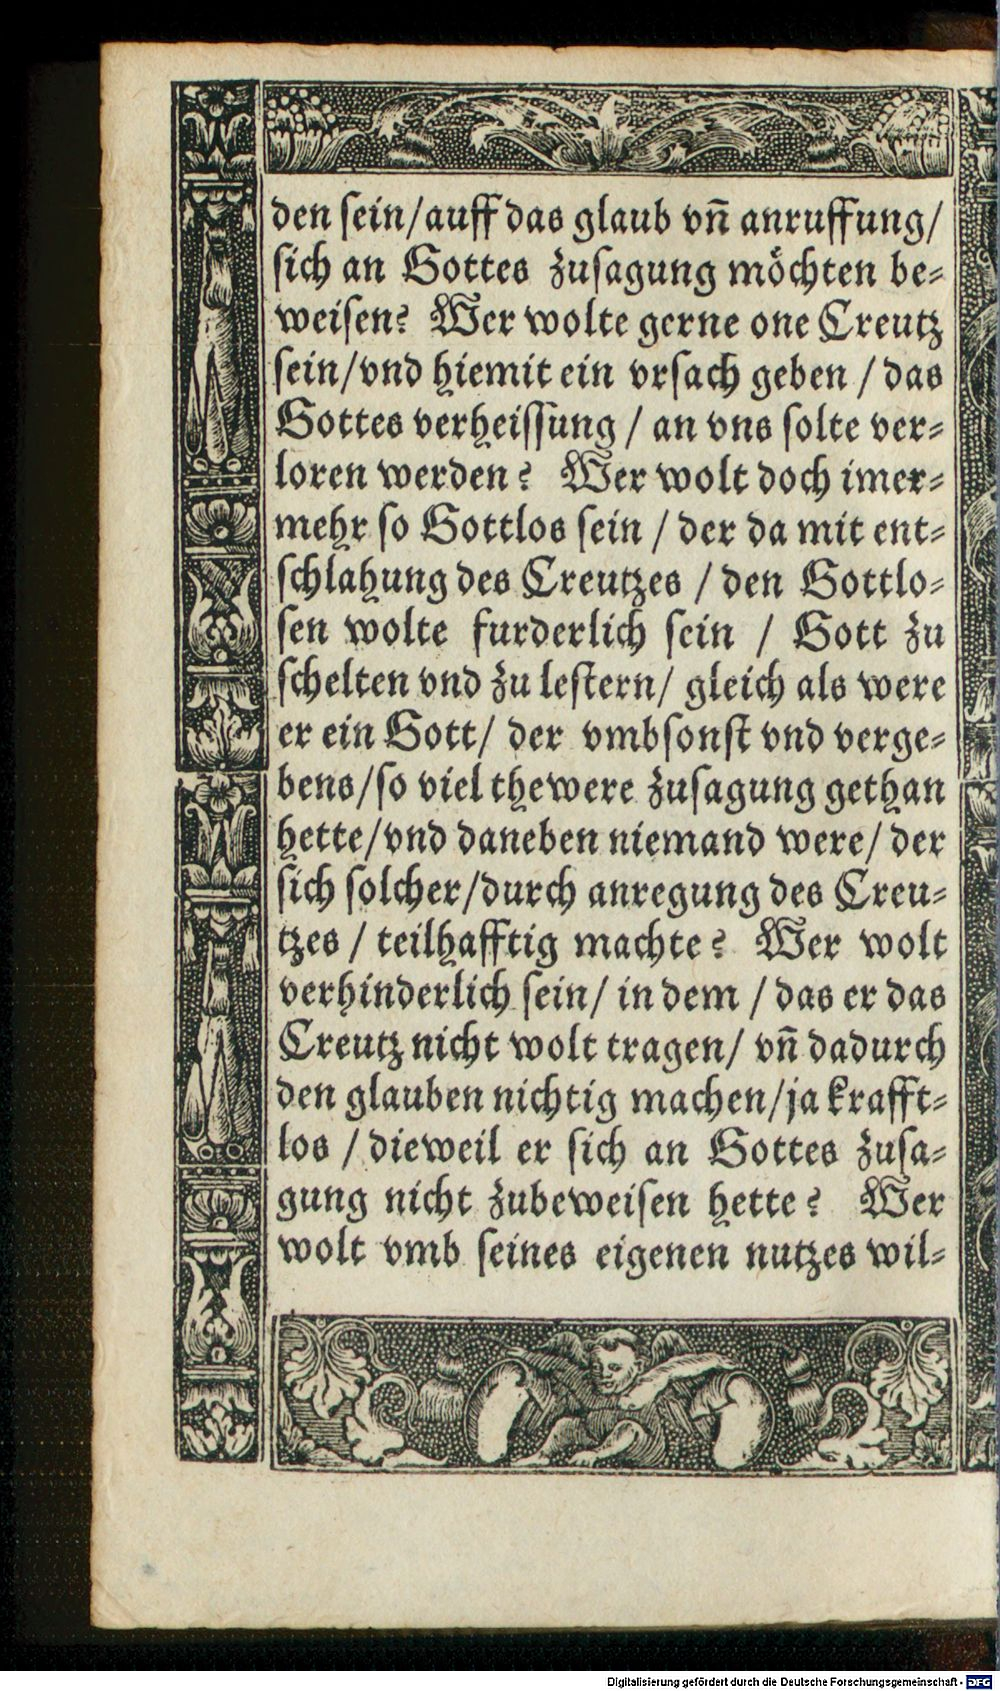 den sein/auff das glaub vn̄ anruffung/
sich an Gottes zusagung möchten be-
weisen? Wer wolte gerne one Creutz
sein/vnd hiemit ein vrsach geben / das
Gottes verheissung / an vns solte ver-
loren werden? Wer wolt doch imer-
mehr so Gottlos sein / der da mit ent-
schlahung des Creutzes / den Gottlo-
sen wolte furderlich sein / Gott zu
schelten vnd zu lestern/ gleich als were
er ein Gott/ der vmbsonst vnd verge-
bens/so viel thewere zusagung gethan
hette/vnd daneben niemand were/ der
sich solcher/durch anregung des Creu-
tzes / teilhafftig machte? Wer wolt
verhinderlich sein/ in dem / das er das
Creutz nicht wolt tragen/ vn̄ dadurch
den glauben nichtig machen/ja krafft-
los / dieweil er sich an Gottes zusa-
gung nicht zubeweisen hette? Wer
wolt vmb seines eigenen nutzes wil-
Digitalisierung gefördert durch die Deutsche Forschungsgemeinschaft - DFG